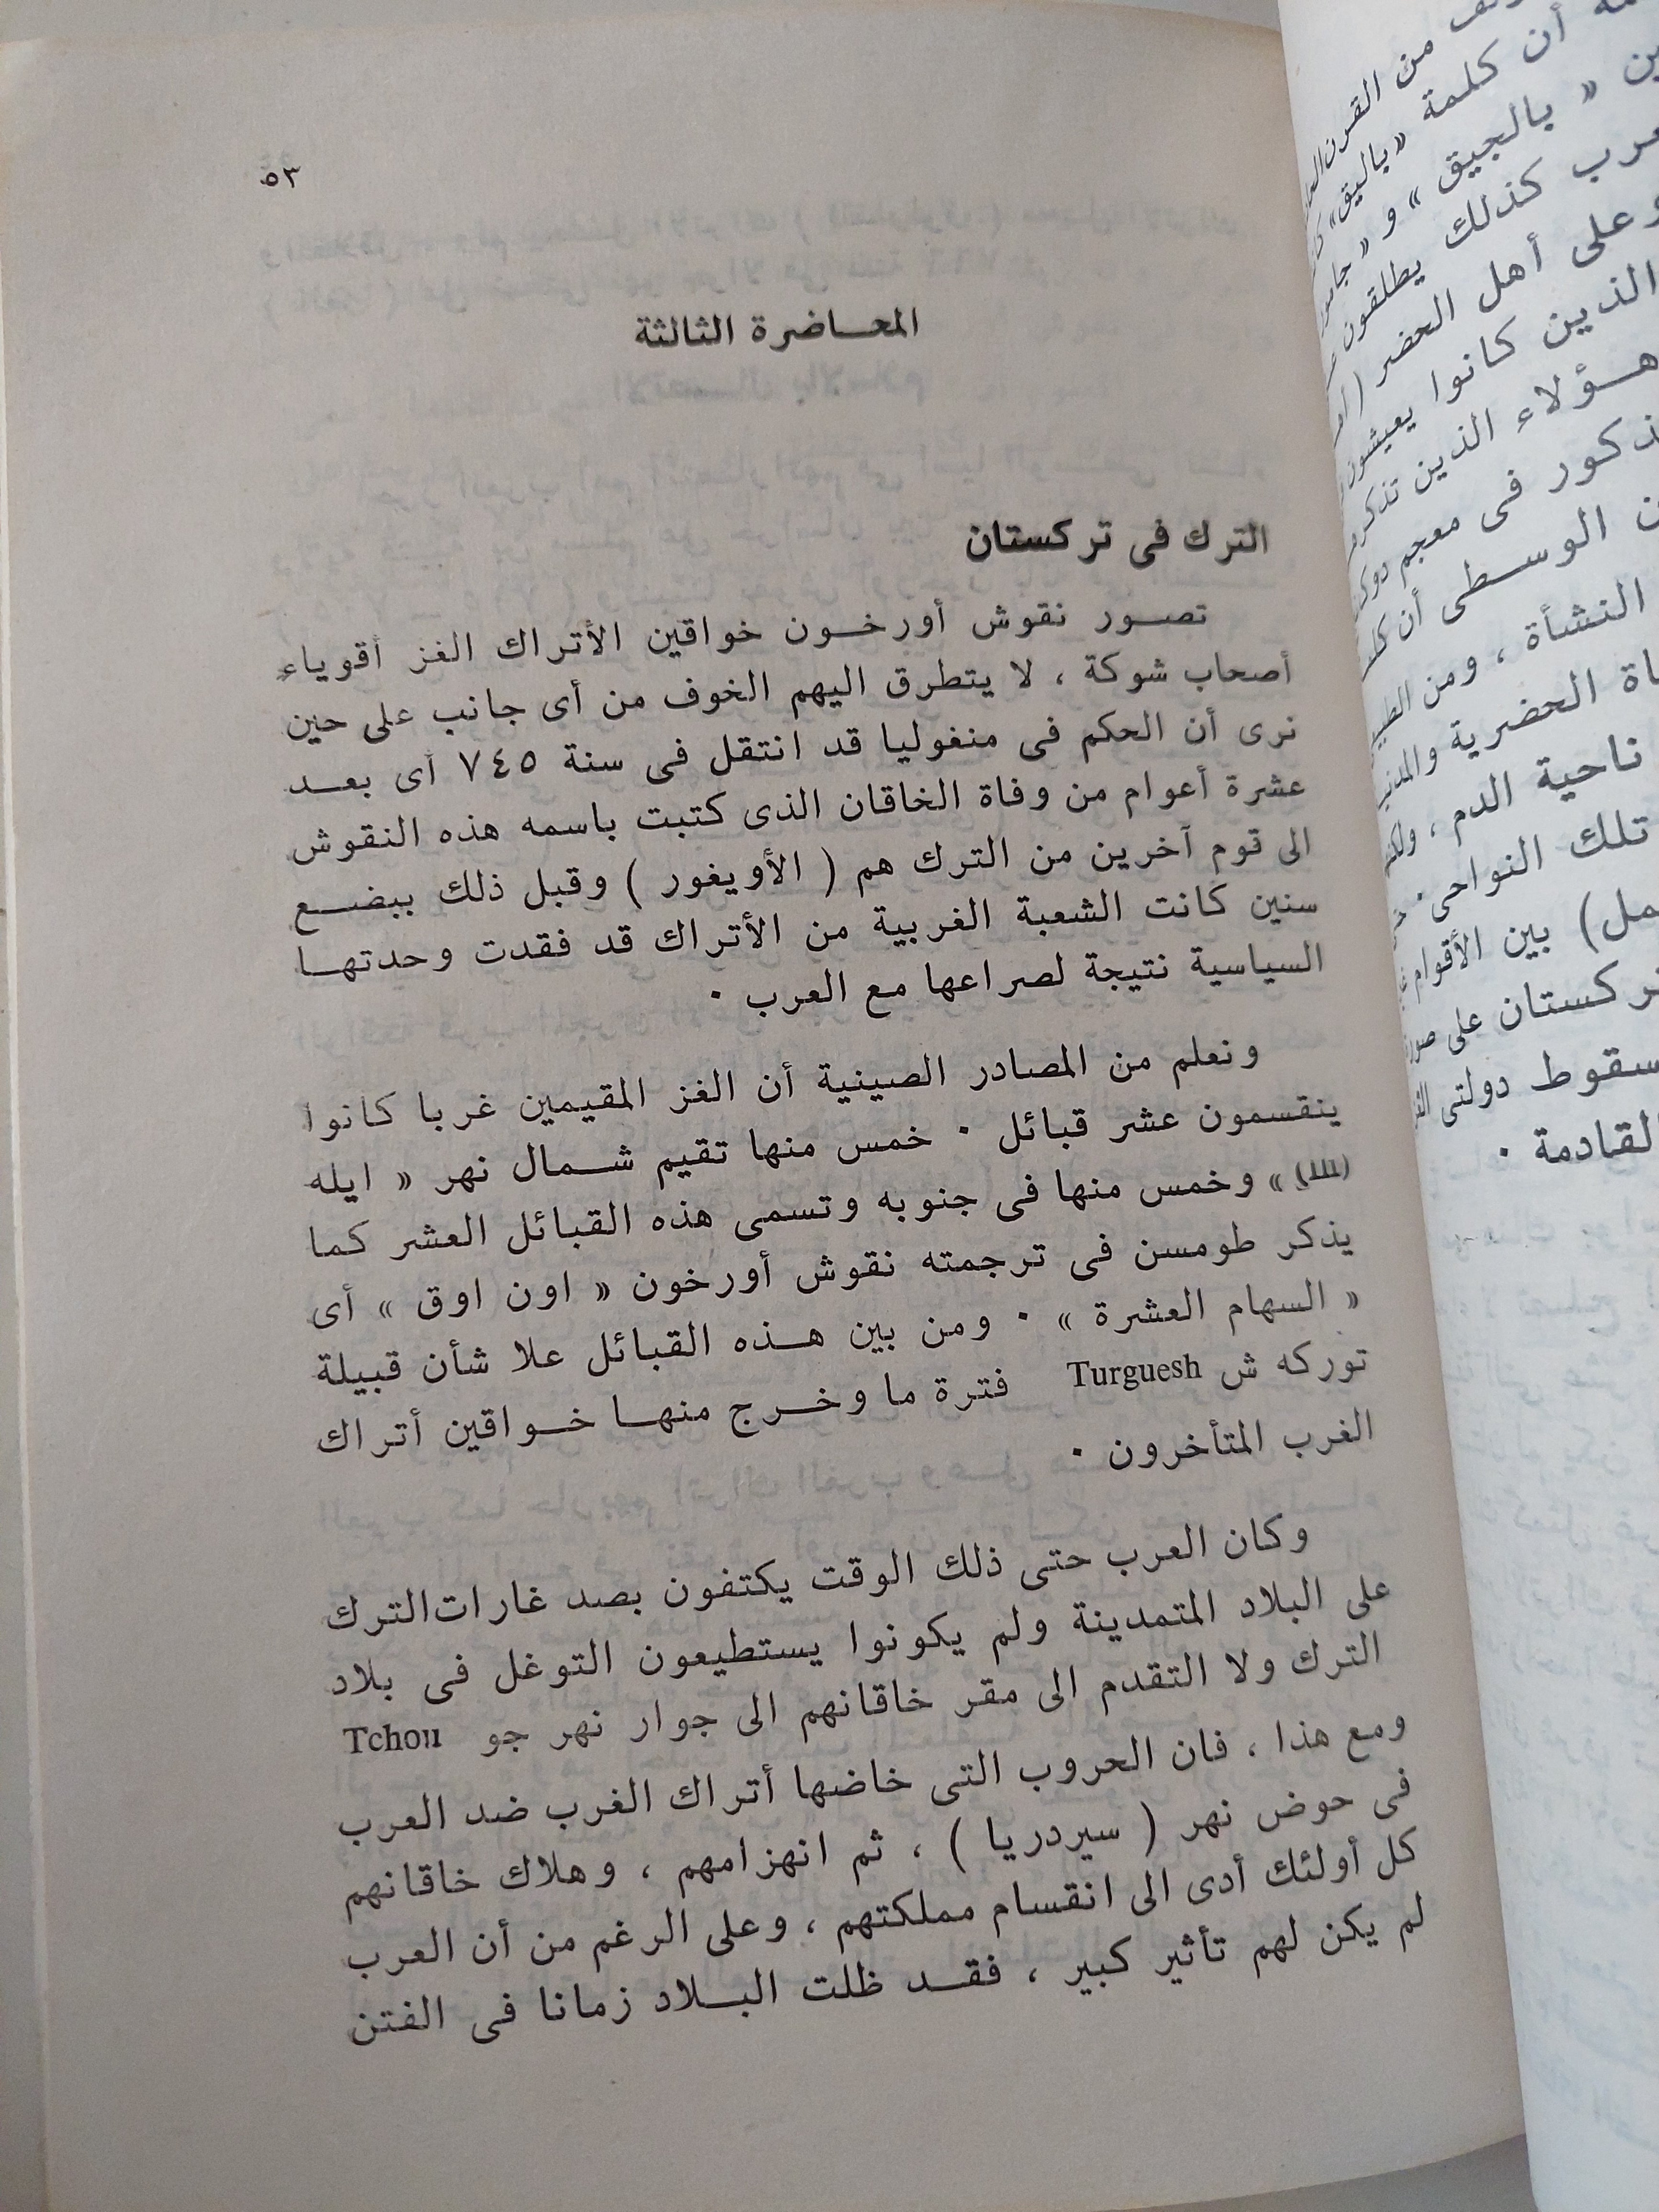 ٥٣
المحاضرة الثالثة
الترك فى تركستان
تصور نقوش أورخون خواقين الأتراك الغز أقوياء
أصحاب شوكة ، لا يتطرق اليهم الخوف من أى جانب على حين
نرى أن الحكم فى منغوليا قد انتقل فى سنة ٧٤٥ أى بعد
عشرة أعوام من وفاة الخاقان الذى كتبت باسمه هذه النقوش
الى قوم آخرين من الترك هم ( الأويغور ) وقبل ذلك ببضع
سنين كانت الشعبة الغربية من الأتراك قد فقدت وحدتها
السياسية نتيجة لصراعها مع العرب ٠
ونعلم من المصادر الصينية أن الغز المقيمين غربا كانوا
ينقسمون عشر قبائل ٠ خمس منها تقيم شمال نهر « ايله
(Ili) » وخمس منها فى جنوبه وتسمى هذه القبائل العشر كما
يذكر طومسن فى ترجمته نقوش أورخون « اون اوق » أى
« السهام العشرة » ٠ ومن بين هذه القبائل علا شأن قبيلة
توركه ش Turguesh فترة ما وخرج منها خواقين أتراك
الغرب المتأخرون ٠
وكان العرب حتى ذلك الوقت يكتفون بصد غارات الترك
على البلاد المتمدينة ولم يكونوا يستطيعون التوغل فى بلاد
الترك ولا التقدم الى مقر خاقانهم الى جوار نهر جو Tchou
ومع هذا ، فان الحروب التى خاضها أتراك الغرب ضد العرب
فى حوض نهر ( سيردريا ) ، ثم انهزامهم ، وهلاك خاقانهم
كل أولئك أدى الى انقسام مملكتهم ، وعلى الرغم من أن العرب
لم يكن لهم تأثير كبير ، فقد ظلت البلاد زمانا فى الفتن
من القرن
أن كلمة «باليق»
« بالجيق » و «
كذلك يطلقون
وعلى أهل الحضر (
الذين كانوا يعيشون
هؤلاء الذين تذكر
فى معجم
الوسطى أن
النشأة ، ومن
الحضرية
ناحية الدم ،
تلك النواحى ٠
بين الأقوام
تركستان على
سقوط دولتى
القادمة ٠